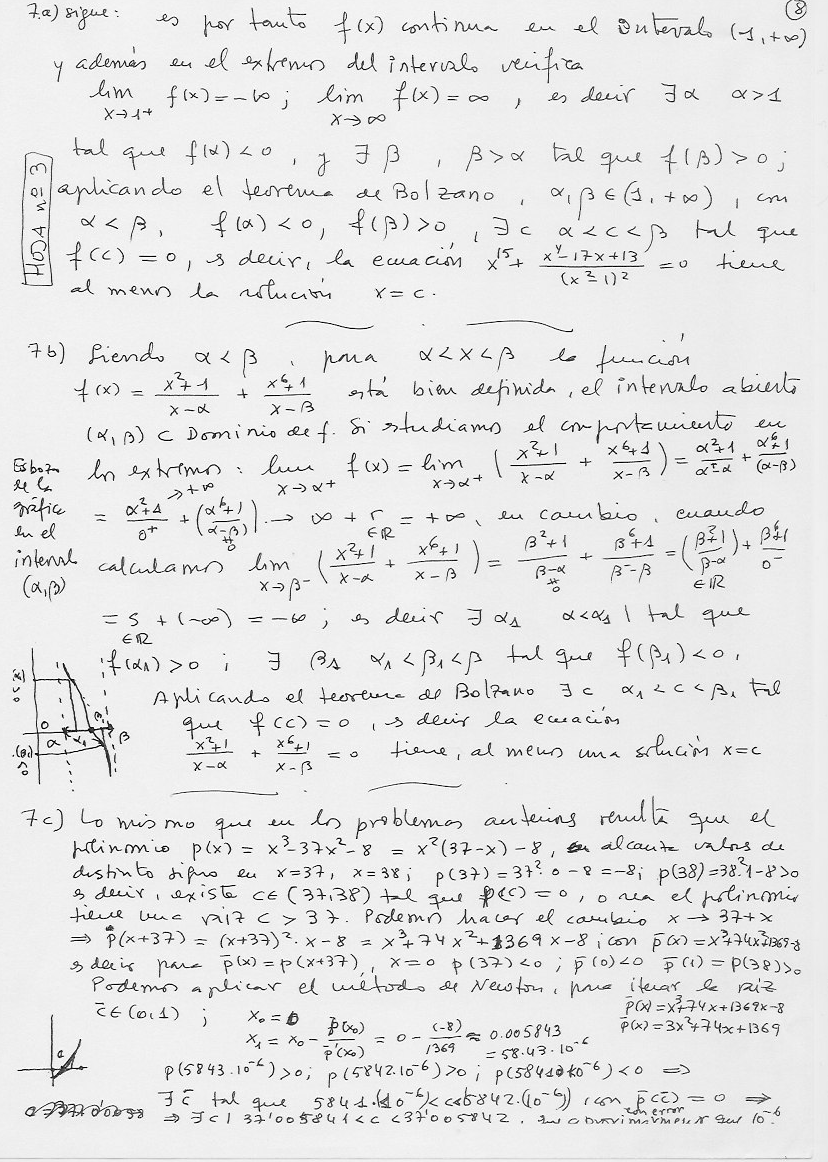 7a) sigue: es por tanto f(x) continua en el Intervalo (1, +∞)
8
y además en el extremo del intervalo verifica
lim x→1+ f(x) = -∞ ; lim x→∞ f(x) = ∞ , es decir ∃α α>1
tal que f(α) < 0 , y ∃ β , β > α tal que f(β) > 0 ;
HOJA nº 3
aplicando el teorema de Bolzano , α, β ∈ (1, +∞) , con
α < β , f(α) < 0, f(β) > 0 , ∃ c α < c < β tal que
f(c) = 0 , es decir, la ecuación x^15 + (x^4-17x+13)/(x^2-1)^2 = 0 tiene
al menos la solución x = c.
7b) Siendo α < β , para α < x < β la función
f(x) = (x^2+1)/(x-α) + (x^6+1)/(x-β) está bien definida, el intervalo abierto
(α, β) ⊂ Dominio de f. Si estudiamos el comportamiento en
los extremos: lim x→α+ f(x) = lim x→α+ ((x^2+1)/(x-α) + (x^6+1)/(x-β)) = (α^2+1)/(α+-α) + (α^6+1)/(α-β)
= (α^2+1)/0+ →+∞ + ((α^6+1)/(α-β)) ≠0 → ∞ + r ∈ℝ = +∞, en cambio, cuando
Esbozo de la gráfica en el intervalo (α, β)
calculamos lim x→β- ((x^2+1)/(x-α) + (x^6+1)/(x-β)) = (β^2+1)/(β-α) ≠0 + (β^6+1)/(β- -β) = ((β^2+1)/(β-α)) ∈ℝ + (β^6+1)/0-
= s ∈ℝ + (-∞) = -∞ ; es decir ∃ α1 α<α1 | tal que
f(α1) > 0 ; ∃ β1 α1 < β1 < β tal que f(β1) < 0.
Aplicando el teorema de Bolzano ∃ c α1 < c < β1 tal
que f(c) = 0 , es decir la ecuación
(x^2+1)/(x-α) + (x^6+1)/(x-β) = 0 tiene, al menos una solución x=c
0 α α1 β
7c) Lo mismo que en los problemas anteriores resulta que el
polinomio p(x) = x^3-37x^2-8 = x^2(37-x)-8, alcanza valores de
distinto signo en x=37, x=38; p(37) = 37^2·0-8 = -8; p(38) = 38^2·1-8>0
es decir, existe c∈(37,38) tal que p(c) = 0, o sea el polinomio
tiene una raíz c > 37. Podemos hacer el cambio x → 37+x
⇒ p(x+37) = (x+37)^2·x-8 = x^3+74x^2+1369x-8 ; con p̄(x) = x^3+74x^2+1369-8
es decir para p̄(x) = p(x+37), x=0 p(37)<0 ; p̄(0)<0 p̄(1) = p(38)>0
Podemos aplicar el método de Newton, para iterar la raíz
c̄ ∈ (0,1) ; x0 = 0 p̄(x) = x^3+74x+1369x-8
x1 = x0 - p̄(x0)/p̄'(x0) = 0 - (-8)/1369 ≈ 0.005843 p̄(x) = 3x^2+74x+1369
= 58.43·10^-6
p(5843·10^-6)>0; p(5842·10^-6)>0; p(5841·10^-6)<0 ⇒
∃ c̄ tal que 5841·(10^-6) < c < 5842·(10^-6) , con p̄(c̄) = 0 ⇒
⇒ ∃ c | 37'005841 < c < 37'005842 , con error que 10^-6